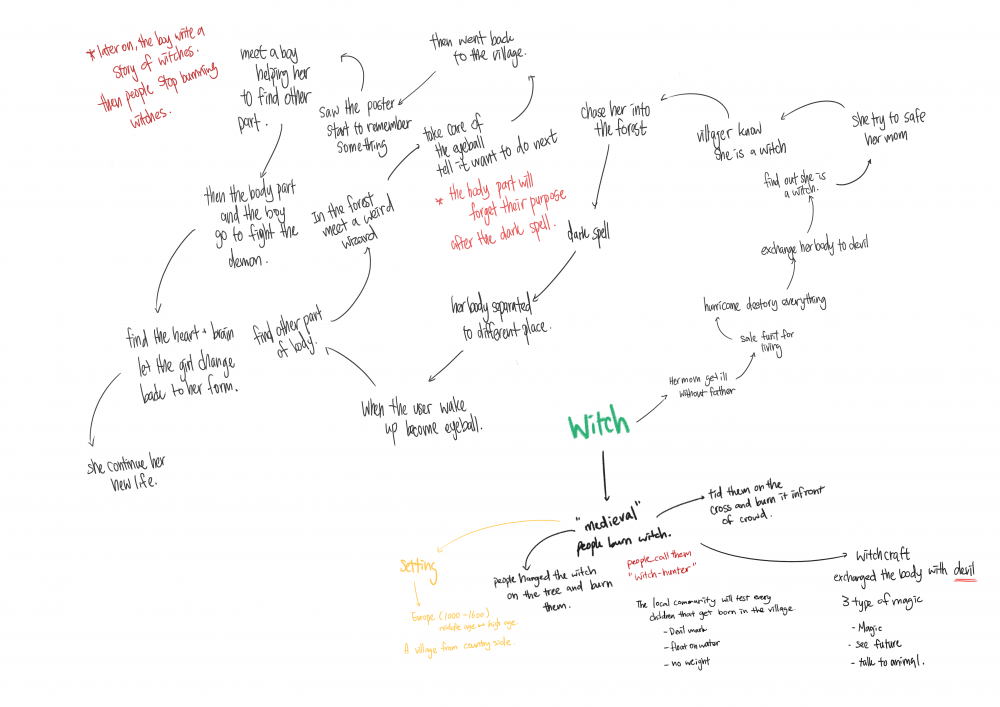 * later on, the boy write a
story of witches.
then people stop burnning
witches.
meet a boy
helping her
to find other
part.
then went back
to the village.
saw the poster
start to remember
something
take care of
the eyeball
tell it want to do next
* the body part will
forget their purpose
after the dark spell.
chase her into
the forest
villager know
she is a witch
she try to safe
her mom
find out she is
a witch.
exchange her body to devil
hurricane destory everything
sale furit for
living
Her mom get ill
without father
dark spell
her body separated
to different place.
When the user wake
up become eyeball.
find other part
of body.
In the forest
meet a weird
wizard
then the body part
and the boy
go to fight the
demon.
find the heart + brain
let the girl change
back to her form.
she continue her
new life.
Witch
"medieval"
people burn witch.
tid them on the
cross and burn it infront
of crowd.
people hanged the witch
on the tree and burn
them.
people call them
"witch-hunter"
The local community will test every
children that get born in the village.
- Devil mark
- float on water
- no weight
witchcraft
exchanged the body with devil
3 type of magic
- Magic
- see future
- talk to animal.
Setting
Europe (1000-1600)
middle age ↔ high age.
A village from country side.